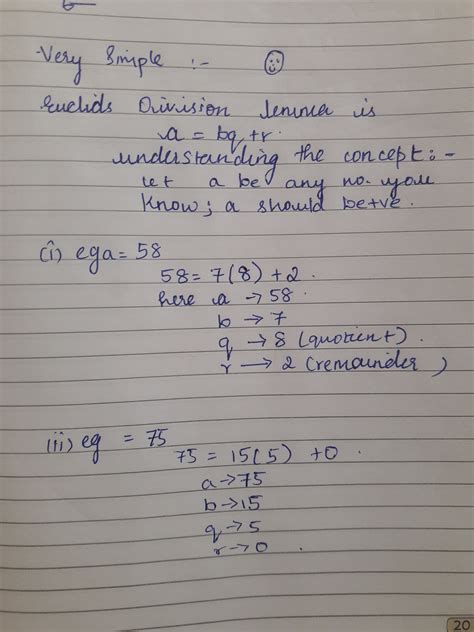 Very Simple :-
Euclids Division lemma is
a = bq + r.
understanding the concept :-
let a be any no. you
know; a should be +ve.
(i) eg a = 58
58 = 7(8) + 2.
here a → 58
b → 7
q → 8 (quotient).
r → 2 (remainder)
(ii) eg = 75
75 = 15(5) + 0.
a → 75
b → 15
q → 5
r → 0
20